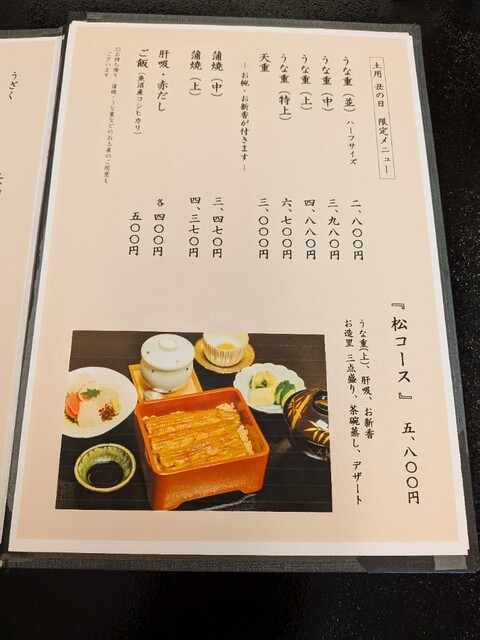 土用 丑の日 限定メニュー
うな重（並）ハーフサイズ 二、八〇〇円
うな重（中） 三、九八〇円
うな重（上） 四、八八〇円
うな重（特上） 六、七〇〇円
天重 三、〇〇〇円
― お椀・お新香が付きます ―
蒲焼（中） 三、四七〇円
蒲焼（上） 四、三七〇円
肝吸・赤だし 各 四〇〇円
ご飯（魚沼産コシヒカリ） 五〇〇円
◎お持ち帰り 蒲焼・うな重などのお土産のご用意も
ございます
『松コース』 五、八〇〇円
うな重(上)、肝吸、お新香
お造里 三点盛り、茶碗蒸し、デザート
うざく